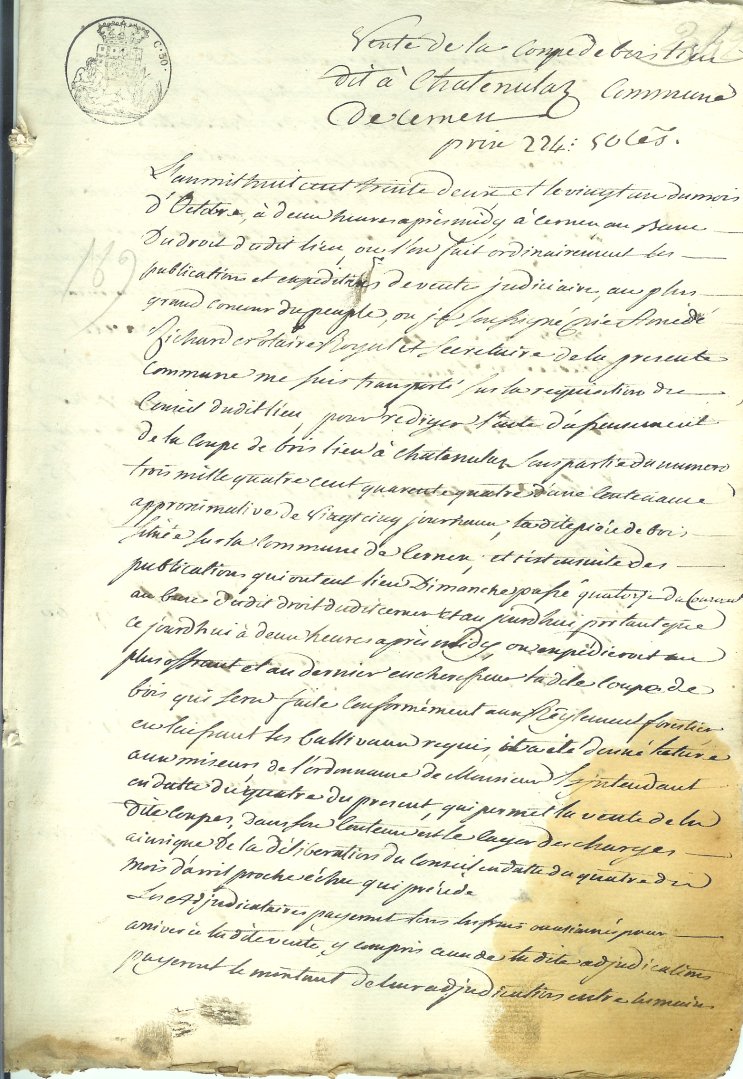 C. 50.
Vente de la Coupe de bois lieu
dit à Chatenulaz Commune
De Cernex
prix 224: 50 Ces.
169
L'an mil huit cent trente deux et le vingt un du mois
d'Octobre, à deux heures après midy à Cernex au Banc
Du droit dudit lieu, ou l'on fait ordinairement les
publications et expeditions de vente judiciaire, au plus
grand concour du peuple, ou je soussigné Amédé
Richard Notaire Royal et Secretaire de la presente
Commune me suis transporté sur la requisition du
Conseil dudit lieu, pour rediger l'acte d'
de la Coupe de bois lieu à Chatenulaz sous partie du numero
trois mille quatre cent quarente quatre d'une Contenance
approximative de Vingt cinq journaux, la dite pièce de bois
située sur la Commune de Cernex; et ensuite des
publications qui ont eut lieu Dimanche passé quatorze du Courant
au banc dudit droit dudit Cernex et au jourd'hui portant que
ce jourdhui à deux heures après midy, on expedieroit au
plus offrant et au dernier encherisseur la dite Coupe de
bois qui sera faite Conformément aux Règlement forestier
en laissant les Ballivaux requis, il a été donné lecture
aux miseurs de l'ordonnance de Monsieur L'intendant
en datte du quatre du present, qui permet la vente de la
Dite Coupes, dans son Contenu est le Cayer des charges
ainsi que de la déliberation du Conseil en datte du quatre du
mois d'avril proche échu qui précède
Les Adjudicataires payeront tous les frais occasionnés pour
arriver à la dite vente, y compris ceux de la dite adjudications
payeront le montant de leur adjudications entre les mains